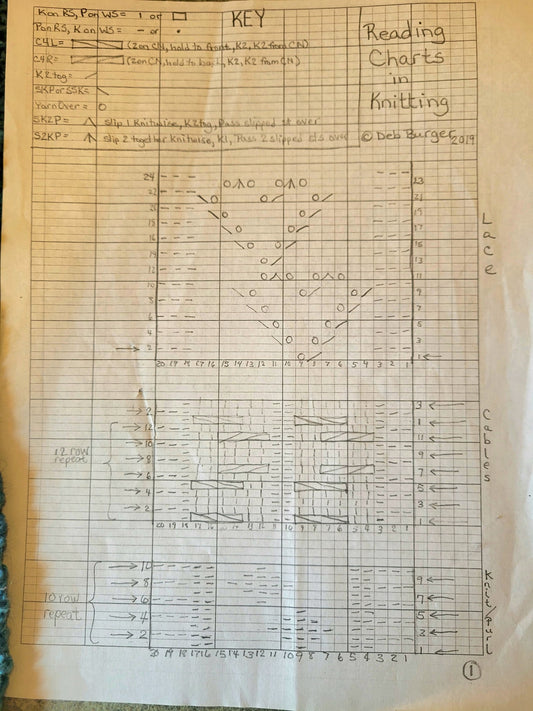 K on RS, P on WS = 1 or □
P on RS, K on WS = – or •
C4L = (2 on CN, hold to front, K2, K2 from CN)
C4R = (2 on CN, hold to back, K2, K2 from CN)
K2tog = /
SKP or SSK = \
Yarn Over = O
SK2P = slip 1 knitwise, K2tog, Pass slipped st over
S2KP = slip 2 together knitwise, K1, Pass 2 slipped sts over
KEY
Reading
Charts
in
Knitting
© Deb Burger 2019
Lace
24 23
22 21
19
17
16 15
13
12 11
10 9
7
5
3
2 1
20 19 18 17 16 15 14 13 12 11 10 9 8 7 6 5 4 3 2 1
Cables
12 row
repeat
2 3
12 1
10 11
8 9
6 7
4 5
2 3
1
20 19 18 17 16 15 14 13 12 11 10 9 8 7 6 5 4 3 2 1
Knit/Purl
10 row
repeat
10 9
8 7
6 5
4 3
2 1
20 19 18 17 16 15 14 13 12 11 10 9 8 7 6 5 4 3 2 1
1